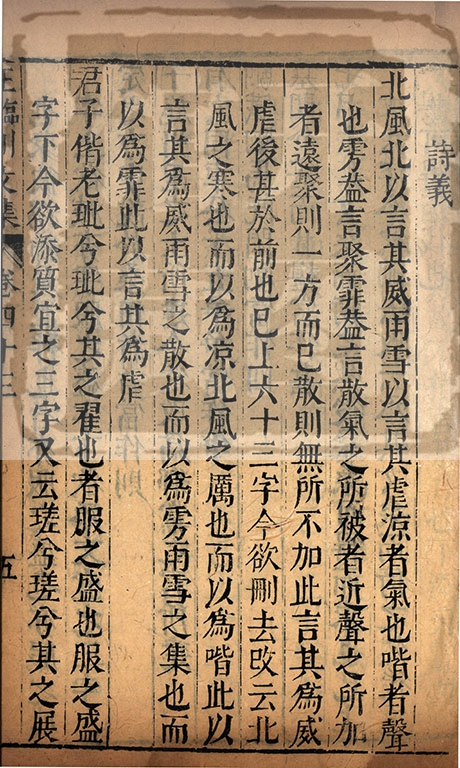 詩義
北風北以言其威雨雪以言其虐涼者氣也喈者聲
也雱葢言聚霏葢言散氣之所被者近聲之所加
者遠聚則一方而已散則無所不加此言其爲威
虐後甚於前也已上六十三字今欲刪去改云北
風之寒也而以爲涼北風之厲也而以爲喈此以
言其爲威雨雪之散也而以爲雱雨雪之集也而
以爲霏此以言其爲虐
君子偕老玼兮玼兮其之翟也者服之盛也服之盛
字下今欲添質宜之三字又云瑳兮瑳兮其之展
王臨川文集 卷四十三 五